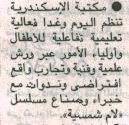 ● مكتبة الإسكندرية
تنظم اليوم وغدا فعالية
تعليمية تفاعلية للأطفال
وأولياء الأمور عبر ورش
علمية وفنية وتجارب واقع
افتراضى وندوات مع
خبراء وصناع مسلسل
«لام شمسية».